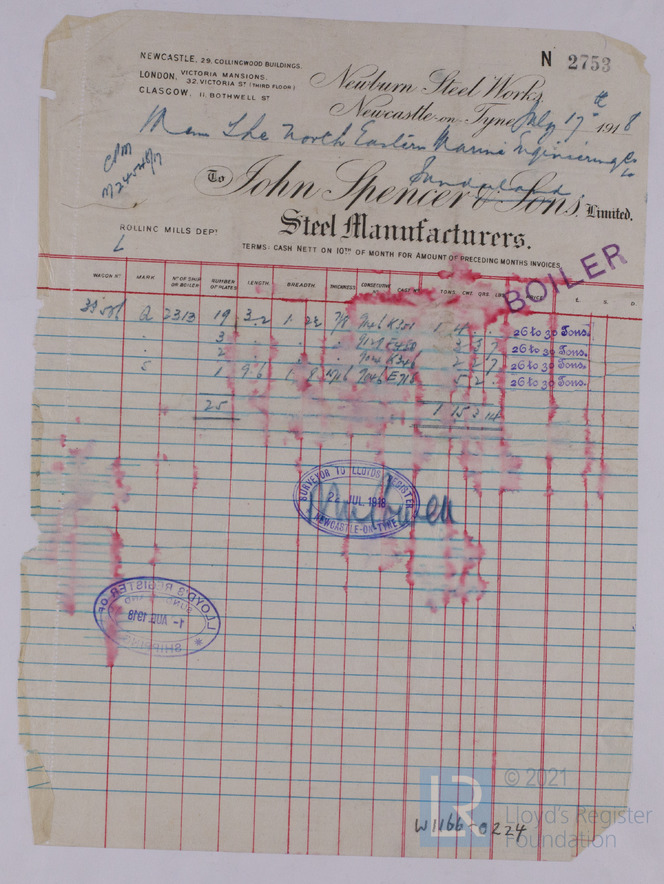 NEWCASTLE, 29, COLLINGWOOD BUILDINGS.
LONDON, VICTORIA MANSIONS, 32, VICTORIA ST (THIRD FLOOR)
GLASGOW, 11, BOTHWELL ST
N 2753
Newburn Steel Works,
Newcastle-on-Tyne, July 17th 1918
The North Eastern Marine Engineering Co
Sunderland
To John Spencer & Sons, Limited.
Steel Manufacturers.
ROLLING MILLS DEPT
TERMS: CASH NETT ON 10TH OF MONTH FOR AMOUNT OF PRECEDING MONTHS INVOICES.
BOILER
WAGON No MARK No OF SHIP OR BOILER NUMBER OF PLATES LENGTH BREADTH THICKNESS TONS CWT QRS LBS £ S D
2313 19 3.2 7/8 26 to 30 Tons.
3 26 to 30 Tons.
2 26 to 30 Tons.
1 9.6 1 8 26 to 30 Tons.
25 1 15 3 14
SURVEYOR TO LLOYDS REGISTER
JUL 1918
NEWCASTLE-ON-TYNE
LLOYD'S REGISTER OF
SUNDERLAND
1- AUG 1918
SHIPPING
LR © 2021
Lloyd's Register
Foundation
W1166-0224